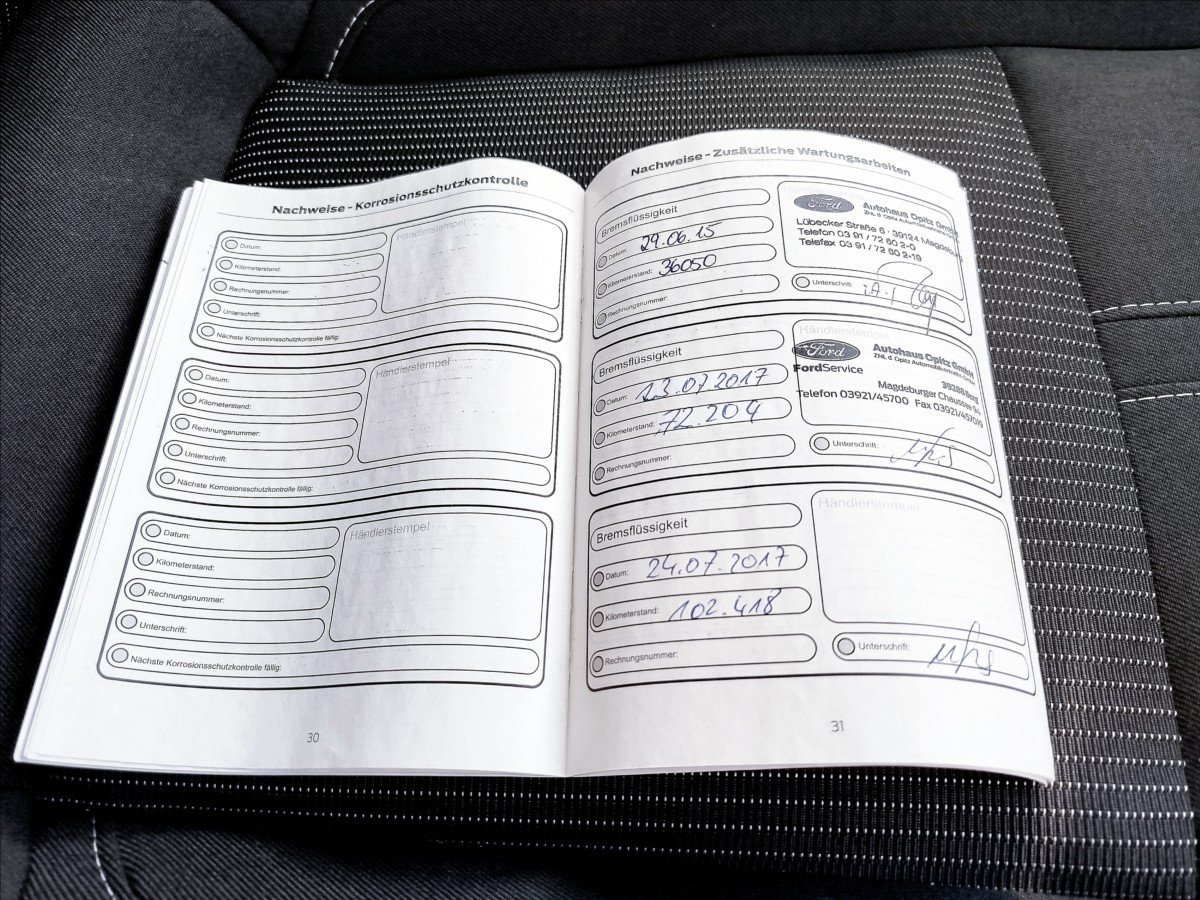 Nachweise - Korrosionsschutzkontrolle
Datum:
Kilometerstand:
Rechnungsnummer:
Unterschrift:
Nächste Korrosionsschutzkontrolle fällig:
Händlerstempel
Datum:
Kilometerstand:
Rechnungsnummer:
Unterschrift:
Nächste Korrosionsschutzkontrolle fällig:
Händlerstempel
Datum:
Kilometerstand:
Rechnungsnummer:
Unterschrift:
Nächste Korrosionsschutzkontrolle fällig:
Händlerstempel
30
Nachweise - Zusätzliche Wartungsarbeiten
Bremsflüssigkeit
Datum: 29.06.15
Kilometerstand: 36050
Rechnungsnummer:
Ford
Autohaus Opitz GmbH
ZNL d. Opitz Automobilvertriebs GmbH
Lübecker Straße 6 · 39124 Magdeburg
Telefon 03 91 / 72 60 2-0
Telefax 03 91 / 72 60 2-19
Unterschrift: i.A.
Bremsflüssigkeit
Datum: 13.07.2017
Kilometerstand: 72.204
Rechnungsnummer:
Händlerstempel
Ford
FordService
Autohaus Opitz GmbH
ZNL d. Opitz Automobilvertriebs GmbH
39288 Burg
Magdeburger Chaussee 94
Telefon 03921/45700 Fax 03921/457019
Unterschrift:
Bremsflüssigkeit
Datum: 24.07.2017
Kilometerstand: 102.418
Rechnungsnummer:
Händlerstempel
Unterschrift:
31